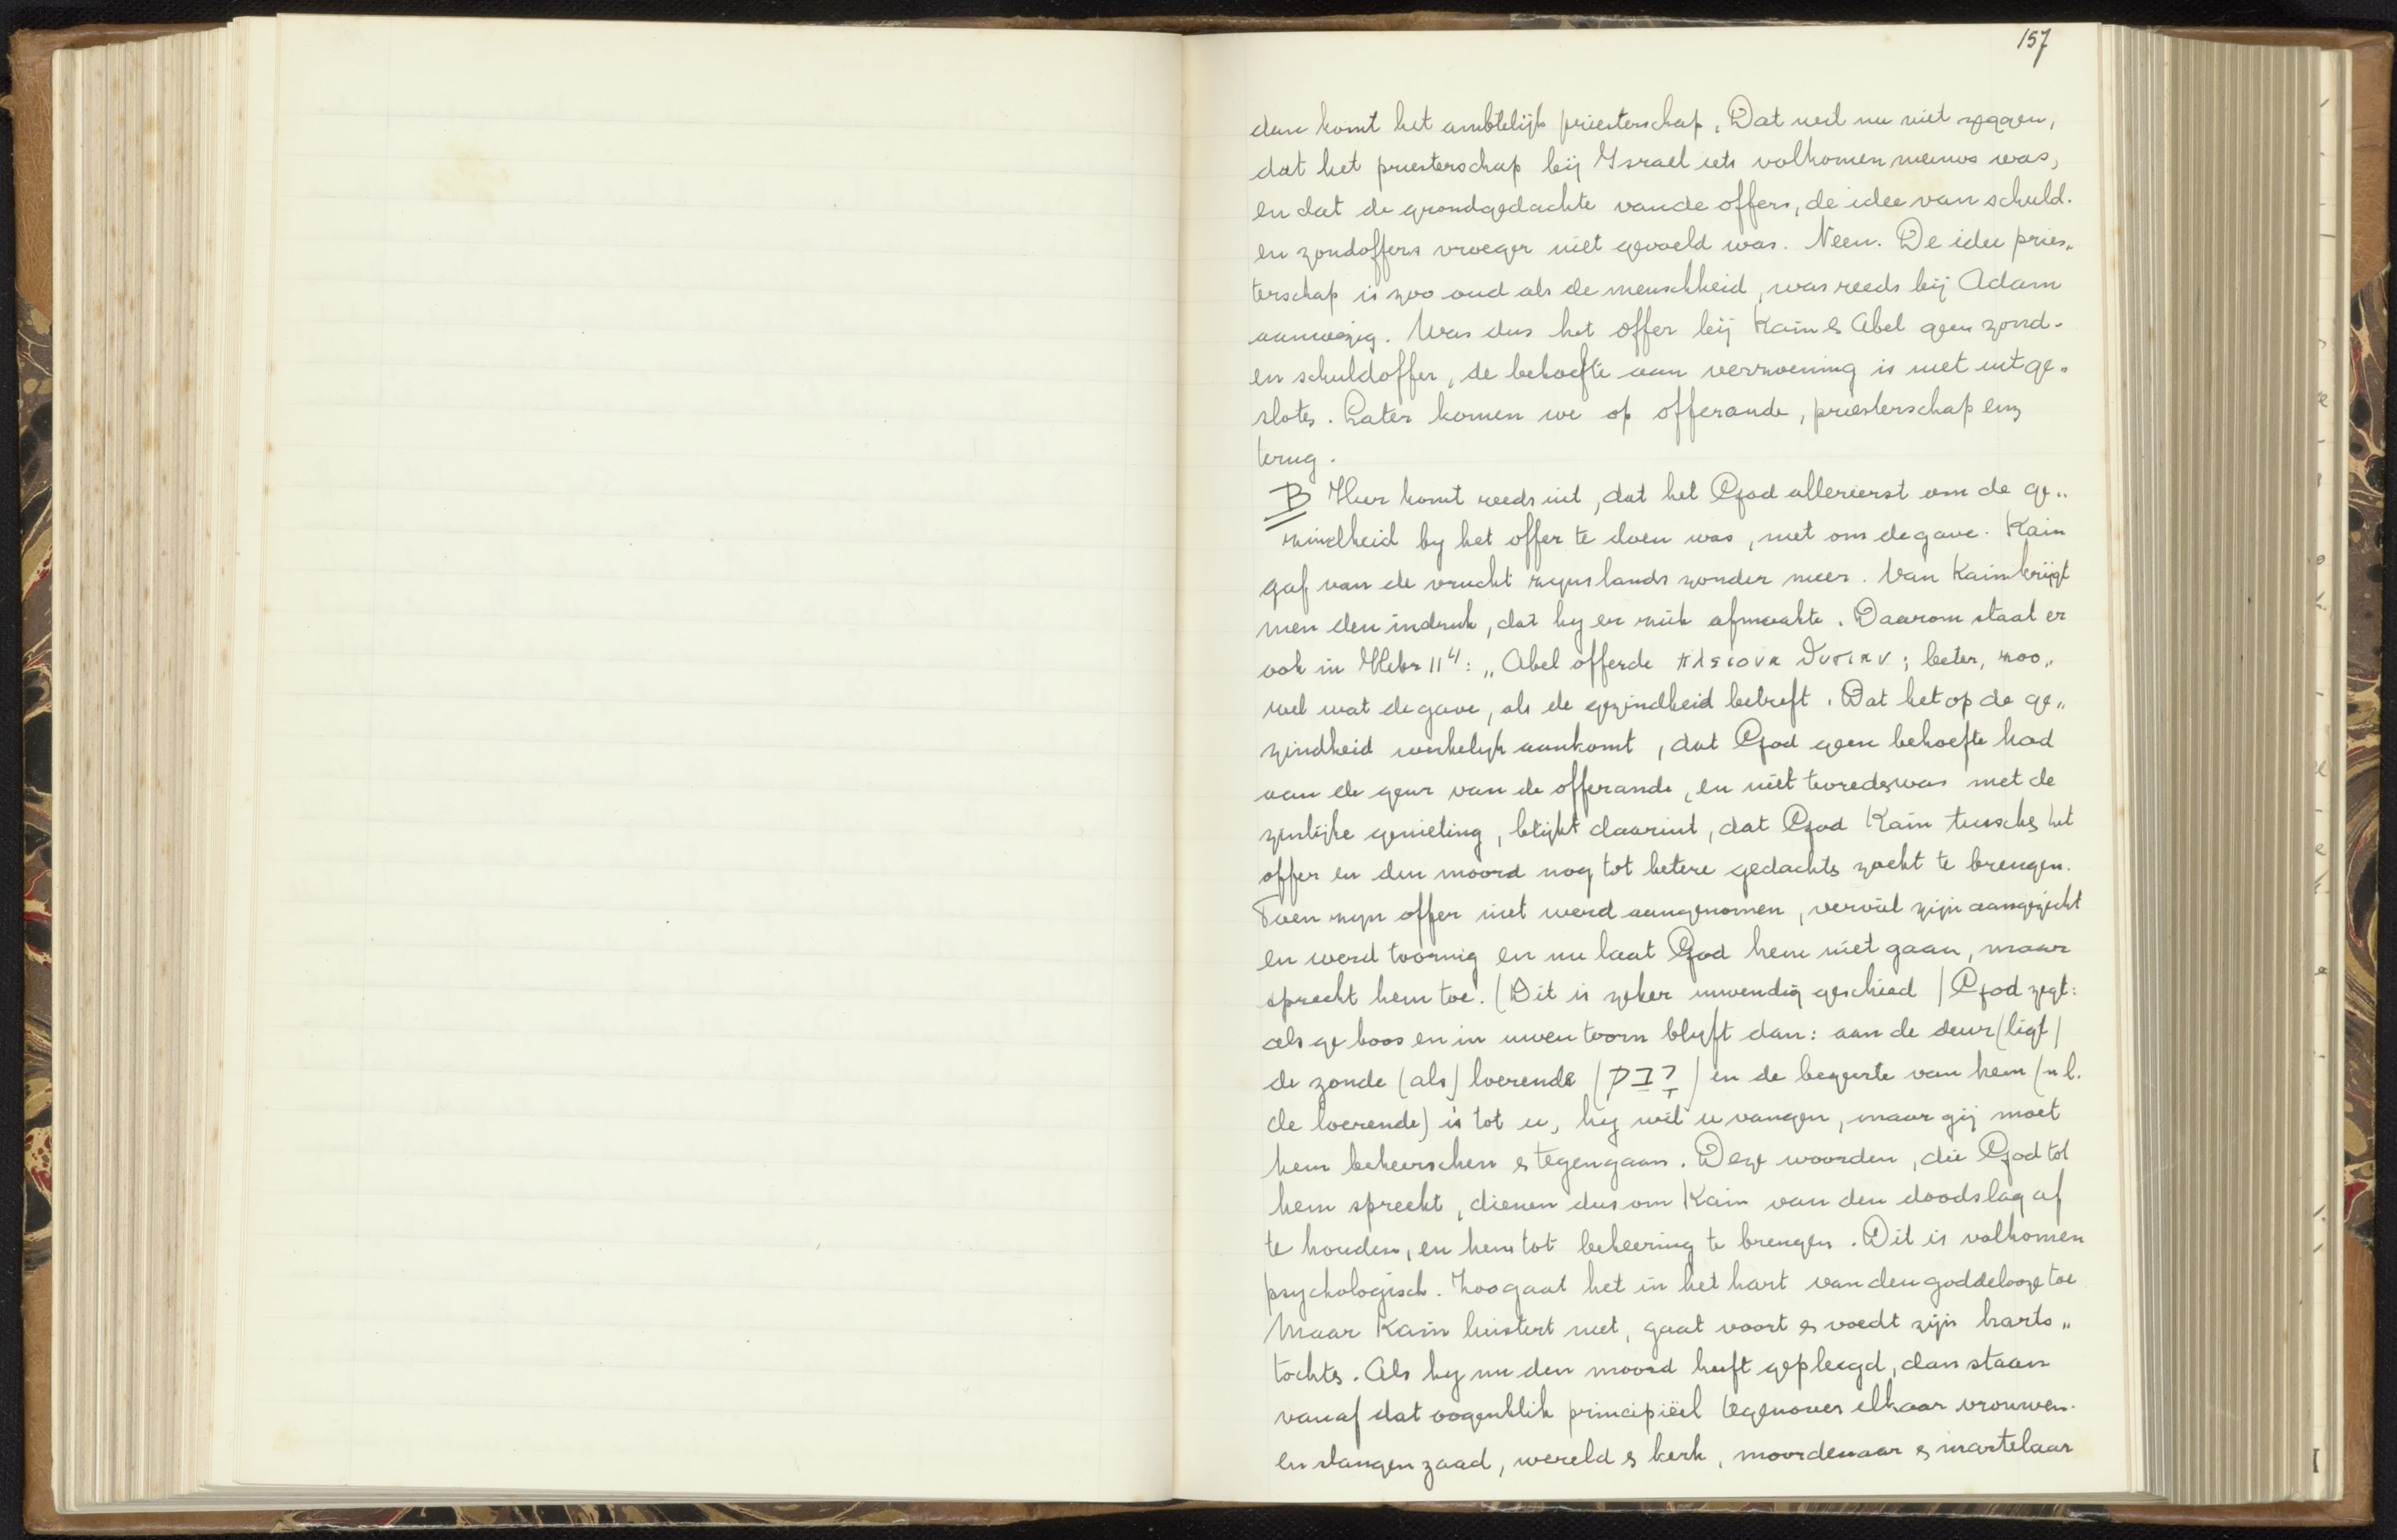 157
dan komt het ambtelijk priesterschap. Dat wil nu niet zeggen,
dat het priesterschap bij Israel iets volkomen nieuws was,
en dat de grondgedachte van de offers, de idee van schuld-
en zondoffers vroeger niet gevoeld was. Neen. De idee pries„
terschap is zoo oud als de menschheid, was reeds bij Adam
aanwezig. Was dus het offer bij Kain & Abel geen zond-
en schuldoffer, de behoefte aan verzoening is niet uitge„
sloten. Later komen we op offerande, priesterschap enz
terug.
B Hier komt reeds uit, dat het God allereerst om de ge„
zindheid by het offer te doen was, niet om de gave. Kain
gaf van de vrucht zyns lands zonder meer. Van Kain krijgt
men den indruk, dat hy er zich afmaakte. Daarom staat er
ook in Hebr 11⁴: „Abel offerde πλειονα θυσιαν; beter, zoo„
wel wat de gave, als de gezindheid betreft. Dat het op de ge„
zindheid werkelyk aankomt, dat God geen behoefte had
aan de geur van de offerande, en niet tevreden was met de
zinlijke genieting, blijkt daaruit, dat God Kain tusschen het
offer en den moord nog tot betere gedachten zocht te brengen.
Toen zyn offer niet werd aangenomen, verviel zijn aangezicht
en werd toornig en nu laat God hem niet gaan, maar
spreekt hem toe. (Dit is zeker inwendig geschied) God zegt:
als ge boos en in uwen toorn blyft dan: aan de deur (ligt)
de zonde (als) loerende (רֹבֵץ) en de begeerte van hem (nl.
de loerende) is tot u, hy wil u vangen, maar gij moet
hem beheerschen & tegengaan. Deze woorden, die God tot
hem spreekt, dienen dus om Kain van den doodslag af
te houden, en hem tot bekeering te brengen. Dit is volkomen
psychologisch. Zoo gaat het in het hart van den goddelooze toe
Maar Kain luistert niet, gaat voort & voedt zijn harts„
tochten. Als hy nu den moord heeft gepleegd, dan staan
vanaf dat oogenblik principiëel tegenover elkaar vrouwen-
en slangenzaad, wereld & kerk, moordenaar & martelaar